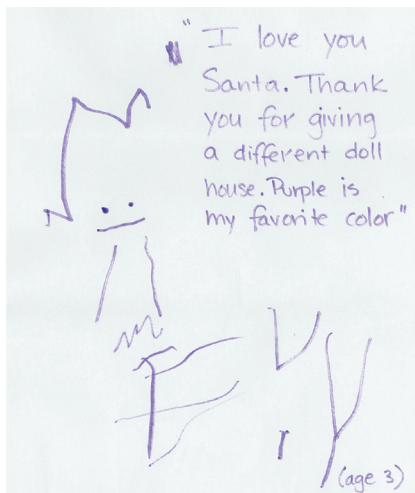 "I love you
Santa. Thank
you for giving
a different doll
house. Purple is
my favorite color"
(age 3)